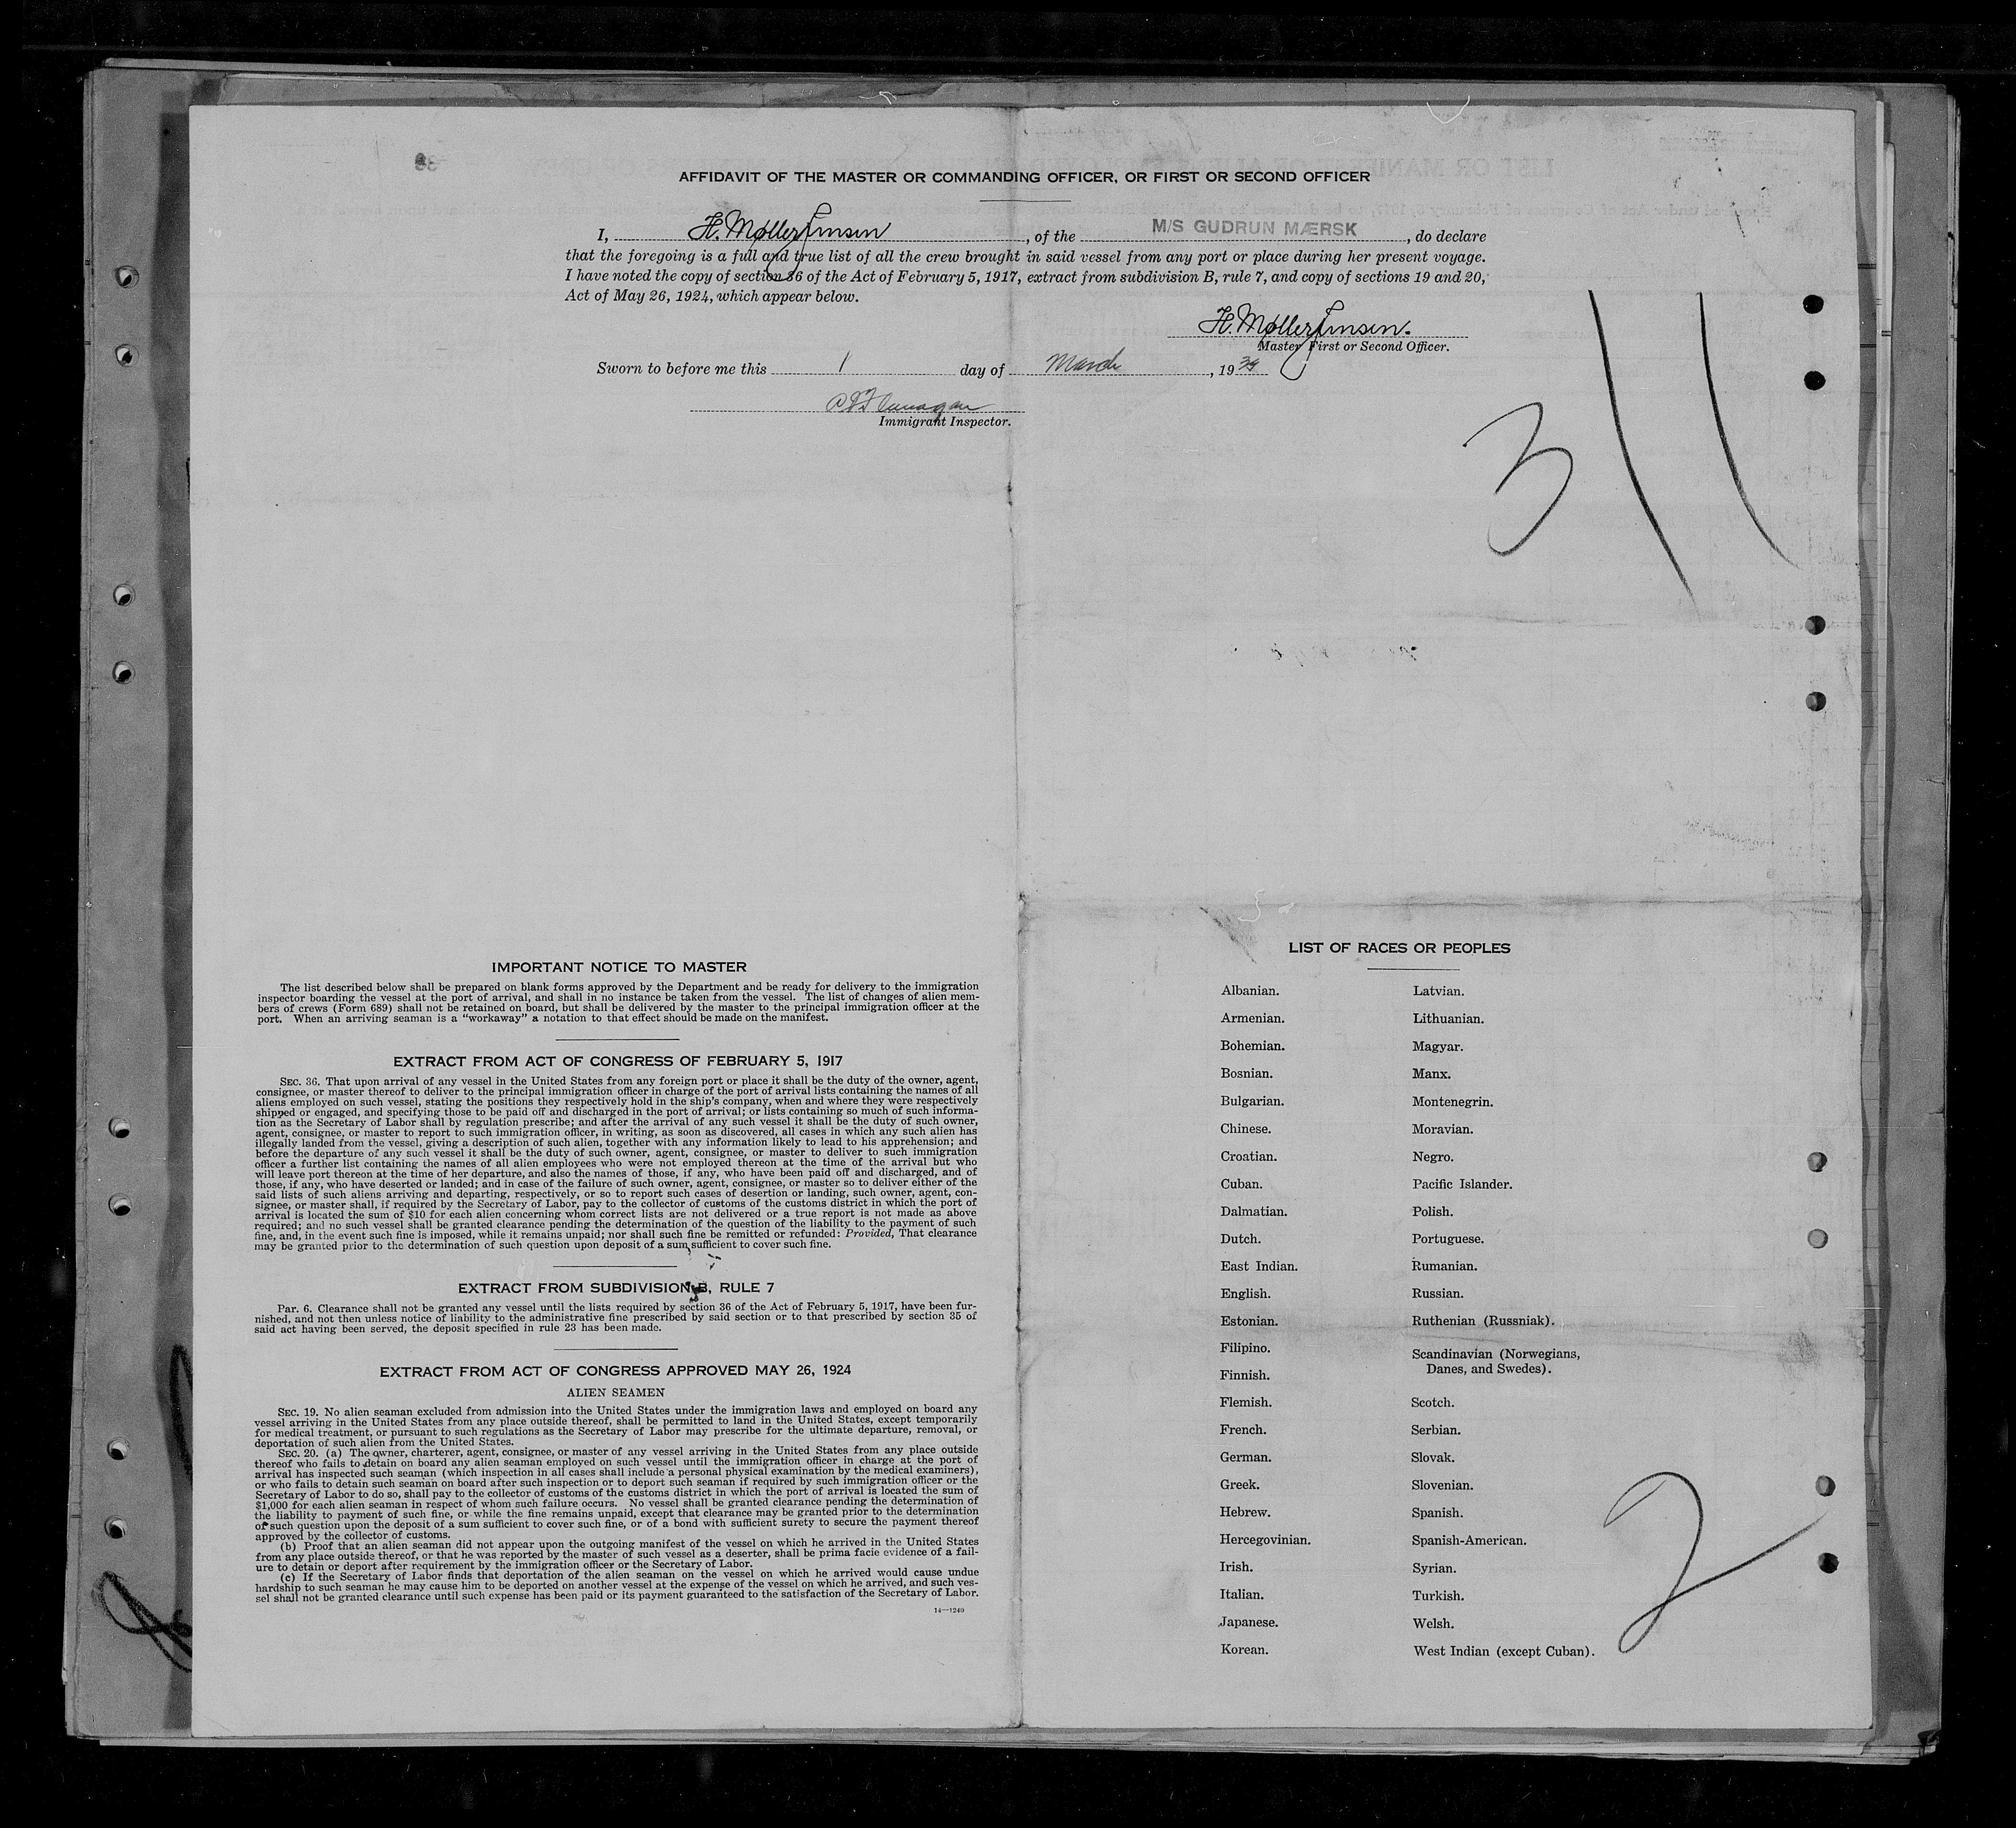 AFFIDAVIT OF THE MASTER OR COMMANDING OFFICER, OR FIRST OR SECOND OFFICER
I, H. Møller Jensen, of the M/S GUDRUN MÆRSK, do declare
that the foregoing is a full and true list of all the crew brought in said vessel from any port or place during her present voyage.
I have noted the copy of section 36 of the Act of February 5, 1917, extract from subdivision B, rule 7, and copy of sections 19 and 20,
Act of May 26, 1924, which appear below.
H. Møller Jensen.
Master, First or Second Officer.
Sworn to before me this 1 day of March, 1939
Flanagan
Immigrant Inspector.
311
IMPORTANT NOTICE TO MASTER
The list described below shall be prepared on blank forms approved by the Department and be ready for delivery to the immigration
inspector boarding the vessel at the port of arrival, and shall in no instance be taken from the vessel. The list of changes of alien mem-
bers of crews (Form 689) shall not be retained on board, but shall be delivered by the master to the principal immigration officer at the
port. When an arriving seaman is a "workaway" a notation to that effect should be made on the manifest.
EXTRACT FROM ACT OF CONGRESS OF FEBRUARY 5, 1917
SEC. 36. That upon arrival of any vessel in the United States from any foreign port or place it shall be the duty of the owner, agent,
consignee, or master thereof to deliver to the principal immigration officer in charge of the port of arrival lists containing the names of all
aliens employed on such vessel, stating the positions they respectively hold in the ship's company, when and where they were respectively
shipped or engaged, and specifying those to be paid off and discharged in the port of arrival; or lists containing so much of such informa-
tion as the Secretary of Labor shall by regulation prescribe; and after the arrival of any such vessel it shall be the duty of such owner,
agent, consignee, or master to report to such immigration officer, in writing, as soon as discovered, all cases in which any such alien has
illegally landed from the vessel, giving a description of such alien, together with any information likely to lead to his apprehension; and
before the departure of any such vessel it shall be the duty of such owner, agent, consignee, or master to deliver to such immigration
officer a further list containing the names of all alien employees who were not employed thereon at the time of the arrival but who
will leave port thereon at the time of her departure, and also the names of those, if any, who have been paid off and discharged, and of
those, if any, who have deserted or landed; and in case of the failure of such owner, agent, consignee, or master so to deliver either of the
said lists of such aliens arriving and departing, respectively, or so to report such cases of desertion or landing, such owner, agent, con-
signee, or master shall, if required by the Secretary of Labor, pay to the collector of customs of the customs district in which the port of
arrival is located the sum of $10 for each alien concerning whom correct lists are not delivered or a true report is not made as above
required; and no such vessel shall be granted clearance pending the determination of the question of the liability to the payment of such
fine, and, in the event such fine is imposed, while it remains unpaid; nor shall such fine be remitted or refunded: Provided, That clearance
may be granted prior to the determination of such question upon deposit of a sum sufficient to cover such fine.
EXTRACT FROM SUBDIVISION B, RULE 7
Par. 6. Clearance shall not be granted any vessel until the lists required by section 36 of the Act of February 5, 1917, have been fur-
nished, and not then unless notice of liability to the administrative fine prescribed by said section or to that prescribed by section 35 of
said act having been served, the deposit specified in rule 23 has been made.
EXTRACT FROM ACT OF CONGRESS APPROVED MAY 26, 1924
ALIEN SEAMEN
SEC. 19. No alien seaman excluded from admission into the United States under the immigration laws and employed on board any
vessel arriving in the United States from any place outside thereof, shall be permitted to land in the United States, except temporarily
for medical treatment, or pursuant to such regulations as the Secretary of Labor may prescribe for the ultimate departure, removal, or
deportation of such alien from the United States.
SEC. 20. (a) The owner, charterer, agent, consignee, or master of any vessel arriving in the United States from any place outside
thereof who fails to detain on board any alien seaman employed on such vessel until the immigration officer in charge at the port of
arrival has inspected such seaman (which inspection in all cases shall include a personal physical examination by the medical examiners),
or who fails to detain such seaman on board after such inspection or to deport such seaman if required by such immigration officer or the
Secretary of Labor to do so, shall pay to the collector of customs of the customs district in which the port of arrival is located the sum of
$1,000 for each alien seaman in respect of whom such failure occurs. No vessel shall be granted clearance pending the determination of
the liability to payment of such fine, or while the fine remains unpaid, except that clearance may be granted prior to the determination
of such question upon the deposit of a sum sufficient to cover such fine, or of a bond with sufficient surety to secure the payment thereof
approved by the collector of customs.
(b) Proof that an alien seaman did not appear upon the outgoing manifest of the vessel on which he arrived in the United States
from any place outside thereof, or that he was reported by the master of such vessel as a deserter, shall be prima facie evidence of a fail-
ure to detain or deport after requirement by the immigration officer or the Secretary of Labor.
(c) If the Secretary of Labor finds that deportation of the alien seaman on the vessel on which he arrived would cause undue
hardship to such seaman he may cause him to be deported on another vessel at the expense of the vessel on which he arrived, and such ves-
sel shall not be granted clearance until such expense has been paid or its payment guaranteed to the satisfaction of the Secretary of Labor.
14—1240
LIST OF RACES OR PEOPLES
Albanian.
Armenian.
Bohemian.
Bosnian.
Bulgarian.
Chinese.
Croatian.
Cuban.
Dalmatian.
Dutch.
East Indian.
English.
Estonian.
Filipino.
Finnish.
Flemish.
French.
German.
Greek.
Hebrew.
Hercegovinian.
Irish.
Italian.
Japanese.
Korean.
Latvian.
Lithuanian.
Magyar.
Manx.
Montenegrin.
Moravian.
Negro.
Pacific Islander.
Polish.
Portuguese.
Rumanian.
Russian.
Ruthenian (Russniak).
Scandinavian (Norwegians,
Danes, and Swedes).
Scotch.
Serbian.
Slovak.
Slovenian.
Spanish.
Spanish-American.
Syrian.
Turkish.
Welsh.
West Indian (except Cuban).
2